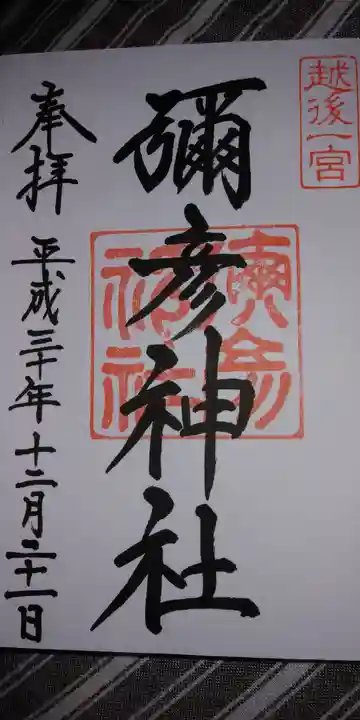 越後一宮
彌彦神社
奉拝
平成三十年十二月二十一日